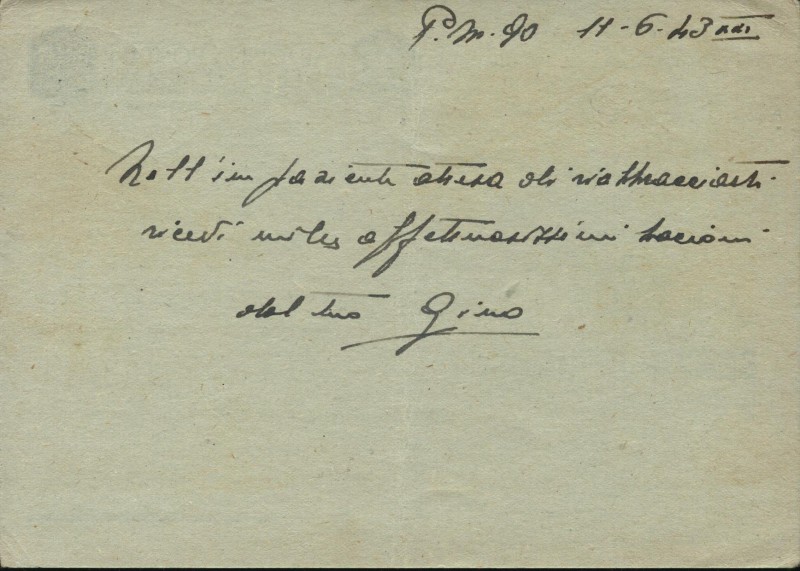 P.M. 90 11-6-43 XXI
Nell'impaziente attesa di riabbracciarti
ricevi mille affettuosissimi bacioni
dal tuo Gino